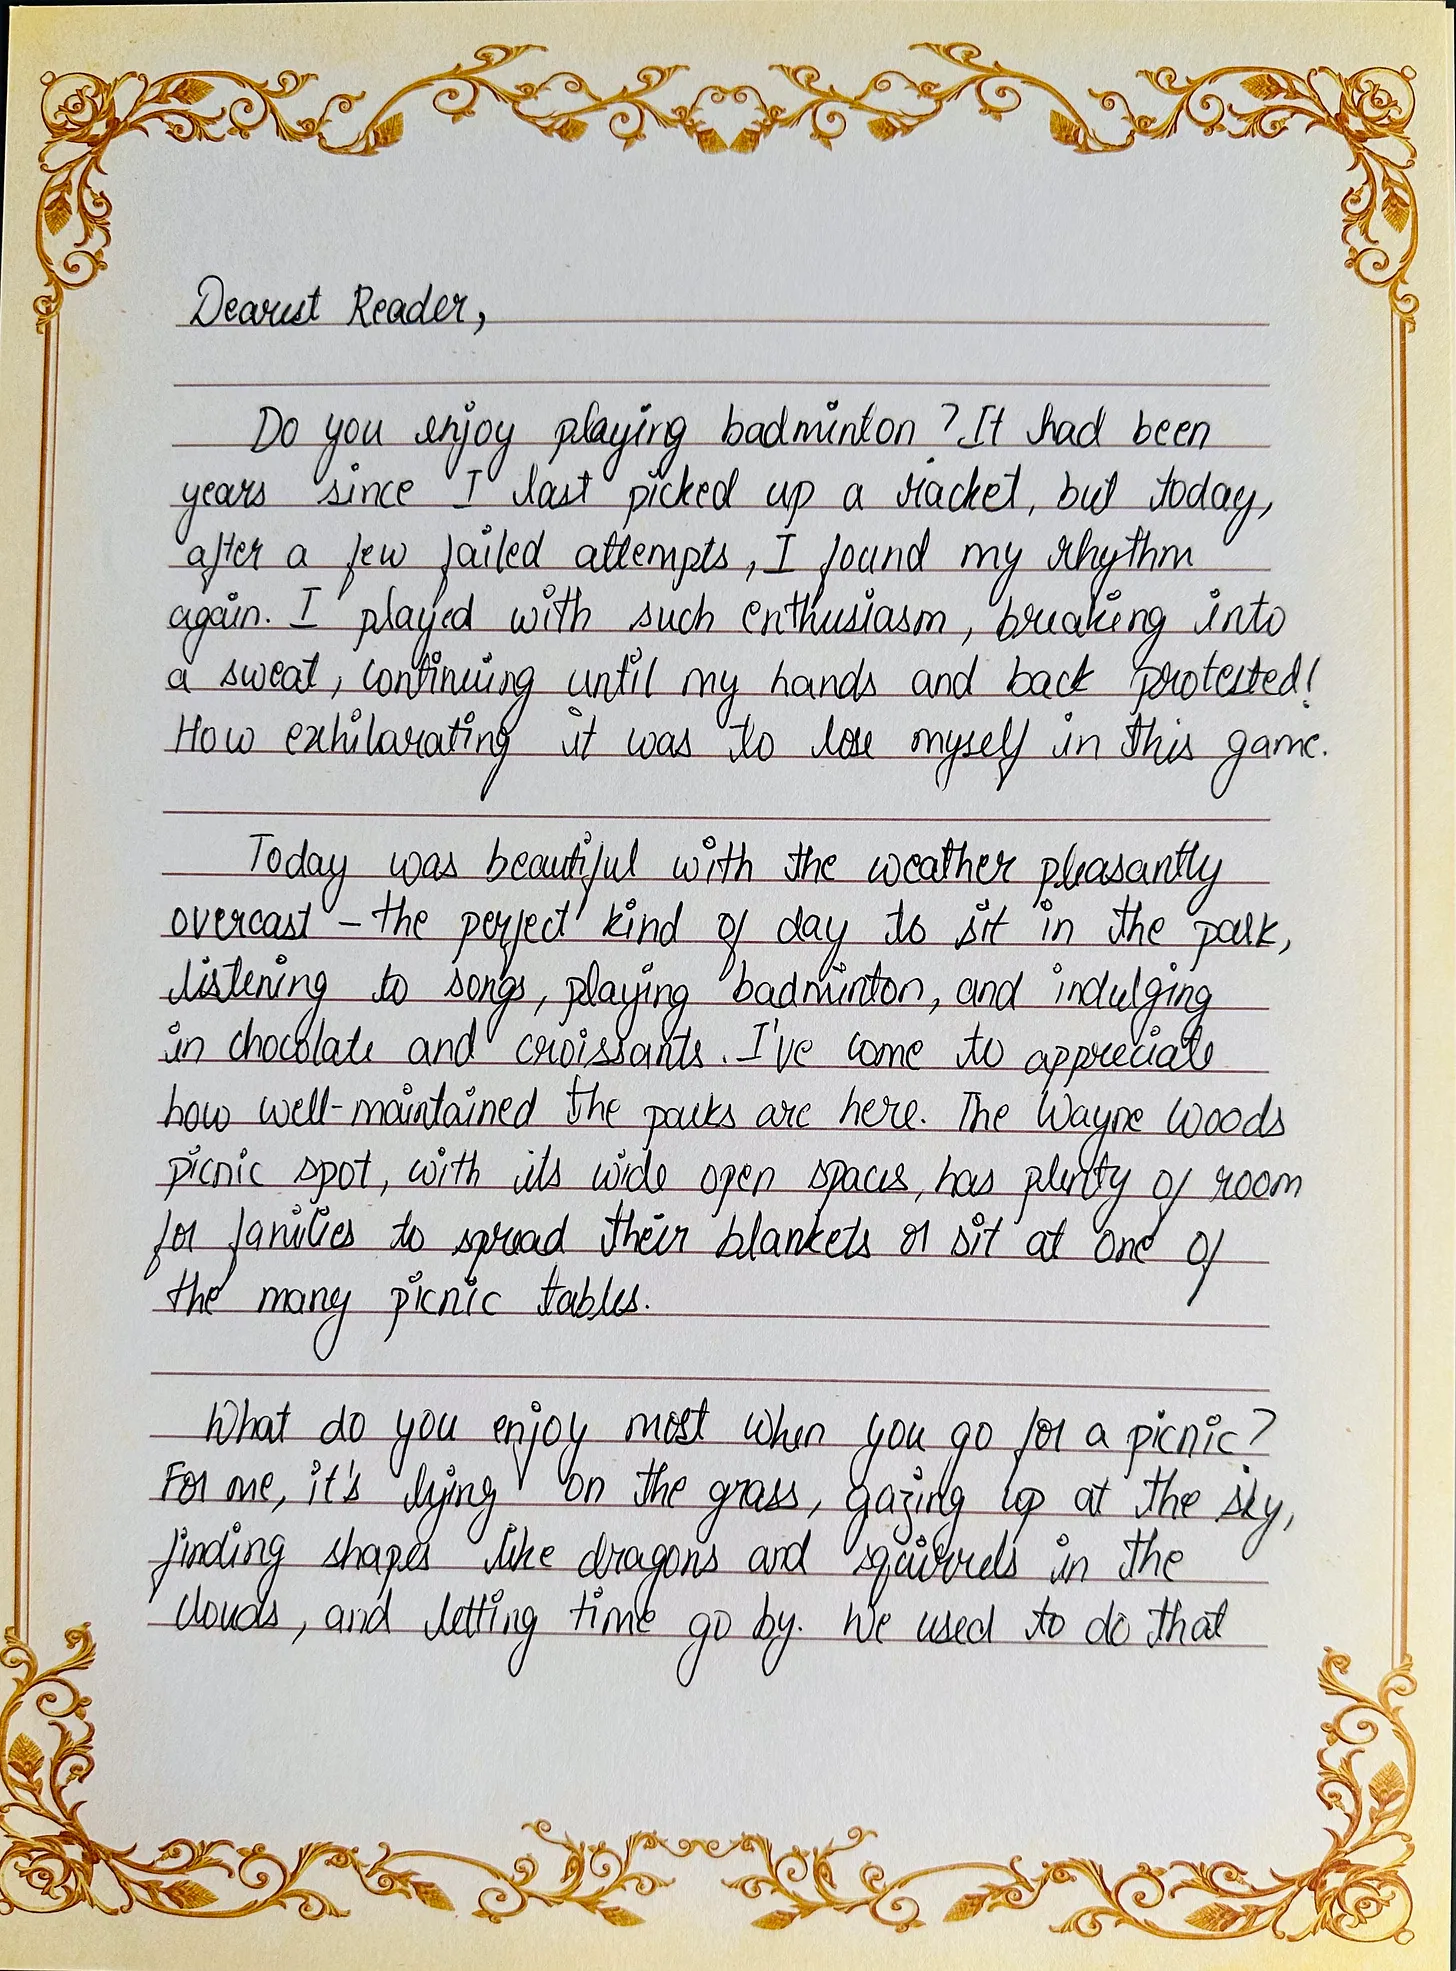 Dearest Reader,
Do you enjoy playing badminton? It had been
years since I last picked up a racket, but today,
after a few failed attempts, I found my rhythm
again. I played with such enthusiasm, breaking into
a sweat, continuing until my hands and back protested!
How exhilarating it was to lose myself in this game.
Today was beautiful with the weather pleasantly
overcast – the perfect kind of day to sit in the park,
listening to songs, playing badminton, and indulging
in chocolate and croissants. I've come to appreciate
how well-maintained the parks are here. The Wayne Woods
picnic spot, with its wide open spaces, has plenty of room
for families to spread their blankets or sit at one of
the many picnic tables.
What do you enjoy most when you go for a picnic?
For me, it's lying on the grass, gazing up at the sky,
finding shapes like dragons and squirrels in the
clouds, and letting time go by. We used to do that